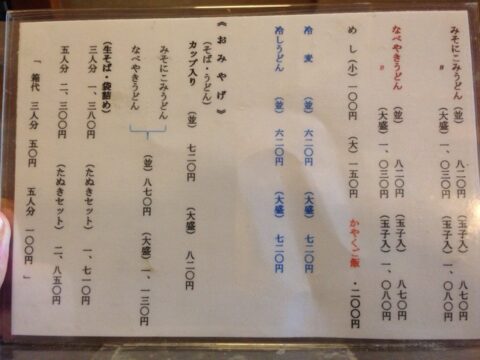 みそにこみうどん (並) 八二〇円 (玉子入) 八七〇円
〃 (大盛) 一、〇三〇円 (玉子入) 一、〇八〇円
なべやきうどん (並) 八二〇円 (玉子入) 八七〇円
〃 (大盛) 一、〇三〇円 (玉子入) 一、〇八〇円
めし (小) 一〇〇円 (大) 一五〇円 かやくご飯・二〇〇円
冷 麦 (並) 六二〇円 (大盛) 七二〇円
冷しうどん (並) 六二〇円 (大盛) 七二〇円
《おみやげ》
(そば・うどん)
カップ入り (並) 七二〇円 (大盛) 八二〇円
みそにこみうどん
なべやきうどん (並) 八七〇円 (大盛) 一、一三〇円
(生そば・袋詰め)
三人分 一、三八〇円 (たぬきセット) 一、七一〇円
五人分 二、三〇〇円 (たぬきセット) 二、八五〇円
「 箱代 三人分 五〇円 五人分 一〇〇円 」